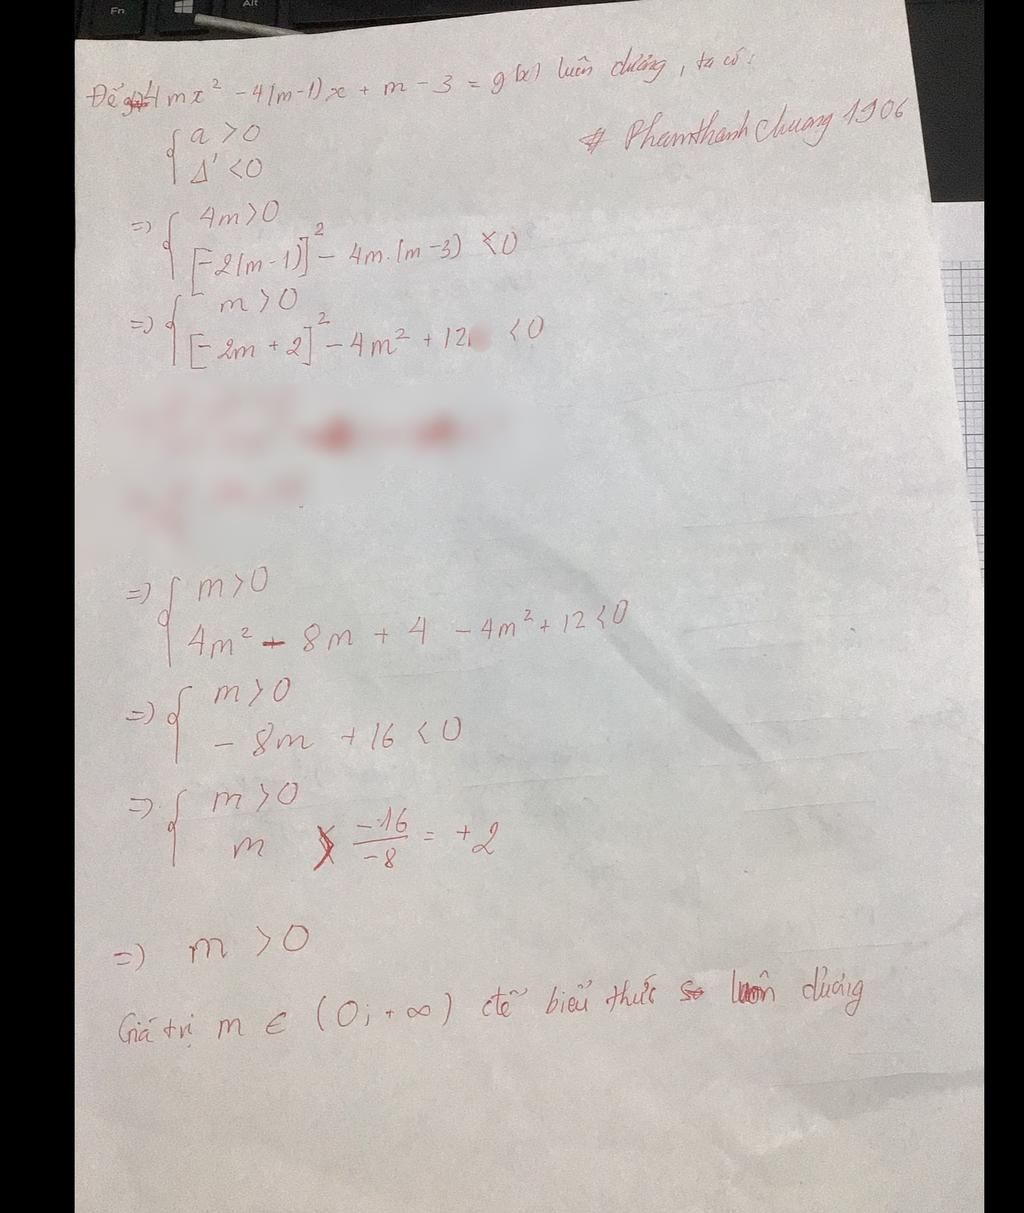 Fn Alt
Để 4mx² - 4(m-1)x + m - 3 = g(x) luôn dương, ta có:
{ a > 0
# Phamthanhchuong1906
Δ' < 0
=> { 4m > 0
[-2(m-1)]² - 4m.(m-3) < 0
=> { m > 0
[-2m + 2]² - 4m² + 12 < 0
=> { m > 0
4m² - 8m + 4 - 4m² + 12 < 0
=> { m > 0
- 8m + 16 < 0
=> { m > 0
m > -16/-8 = +2
=> m > 0
Giá trị m ∈ (0; +∞) để biểu thức luôn dương